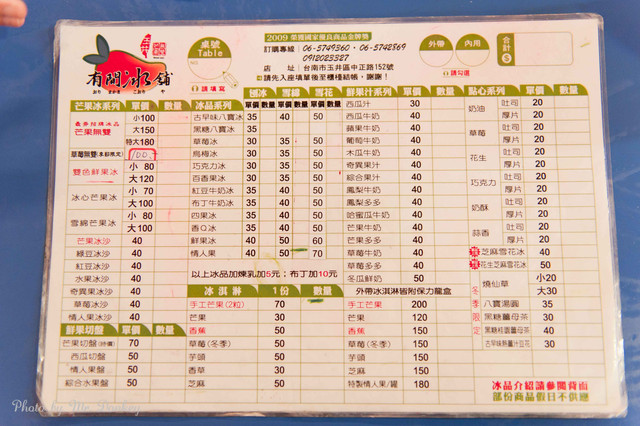 有間冰舖
桌號
Table
請填寫
2009 榮獲國家優良商品金牌獎
訂購專線：06-5749360・06-5742869
0912023327
店 址：台南市玉井區中正路152號
請先入座填單後至櫃檯結帳，謝謝！
外帶
內用
請勾選
合計
$
芒果冰系列 單價 數量
芒果無雙 小100
大150
特大180
草莓無雙(冬季限定) 100
雙色鮮果冰 小 80
大 120
冰心芒果冰 小 70
大 100
雪綿芒果冰 小 80
大 100
芒果冰沙 40
綠豆冰沙 40
紅豆冰沙 40
水果冰沙 40
奇異果冰沙 40
草莓冰沙 40
情人果冰沙 40
鮮果切盤 單價 數量
芒果切盤(時價) 70
西瓜切盤 50
情人果盤 50
綜合水果盤 50
冰品系列 單價 數量 雪綿 單價 數量 雪花 單價 數量
古早味八寶冰 35 40 50
黑糖八寶冰 35
草莓冰 30 35 50
烏梅冰 30 35 50
巧克力冰 30 35 50
百香果冰 30 35 50
紅豆牛奶冰 35 40 50
布丁牛奶冰 35 40 50
四果冰 35 40 50
香Q冰 35 40 50
鮮果冰 40 50 60
情人果 40 50 70
以上冰品加煉乳加5元；布丁加10元
冰淇淋 1份 數量
手工芒果(2粒) 70
芒果 30
香蕉 30
草莓(冬季) 30
芋頭 30
香草 30
芝麻 30
鮮果汁系列 單價 數量
西瓜汁 30
西瓜牛奶 40
蘋果牛奶 40
葡萄牛奶 40
木瓜牛奶 40
奇異果汁 40
綜合果汁 40
鳳梨牛奶 40
鳳梨多多 40
哈蜜瓜牛奶 40
芒果牛奶 40
芒果多多 40
草莓牛奶 40
草莓多多 40
冬瓜鮮奶 50
外帶冰淇淋皆附保力龍盒
手工芒果 200
芒果 120
香蕉 150
草莓(冬季) 150
芋頭 150
芝麻 150
特製情人果/罐 180
點心系列 單價 數量
奶油 吐司 20
厚片 20
草莓 吐司 20
厚片 20
花生 吐司 20
厚片 20
巧克力 吐司 20
厚片 20
奶酥 吐司 20
厚片 20
蒜香 吐司 20
厚片 20
芝麻雪花冰 40
花生芝麻雪花冰 50
燒仙草 小20
大30
冬季限定
八寶湯圓 35
黑糖薑母茶 30
黑糖桂圓薑母茶 40
古早味熱薑汁豆花 30
冰品介紹請參閱背面
部份商品假日不供應
Photo by Mr. Donkey